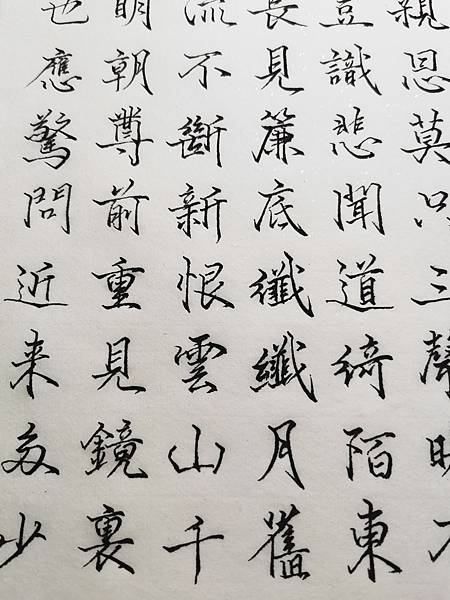 恩莫三
識悲聞道綺陌東
長見簾底纖纖月舊
流不斷新恨雲山千
明朝尊前重見鏡裏
也應驚問近来多少